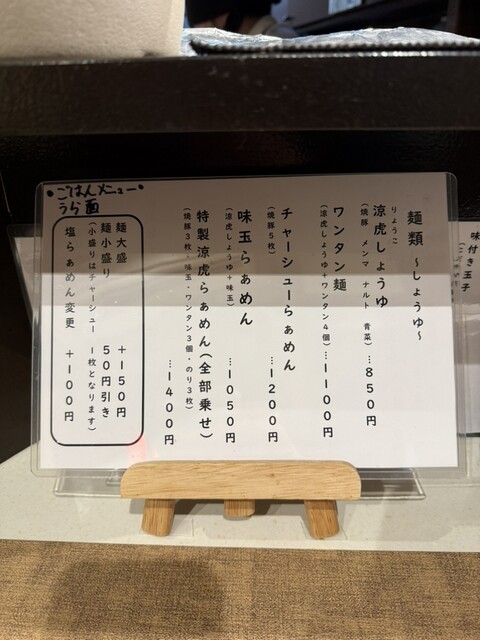 麺類 ～しょうゆ～
りょうこ
涼虎しょうゆ …８５０円
(焼豚 メンマ ナルト 青菜)
ワンタン麺 …１１００円
(涼虎しょうゆ＋ワンタン４個)
チャーシューらぁめん …１２００円
(焼豚５枚)
味玉らぁめん …１０５０円
(涼虎しょうゆ＋味玉)
特製涼虎らぁめん(全部乗せ) …１４００円
(焼豚３枚・味玉・ワンタン３個・のり３枚)
・ごはんメニュー・
うら面
麺大盛 ＋１５０円
麺小盛り ５０円引き
(小盛りはチャーシュー １枚となります)
塩らぁめん変更 ＋１００円
味付き玉子